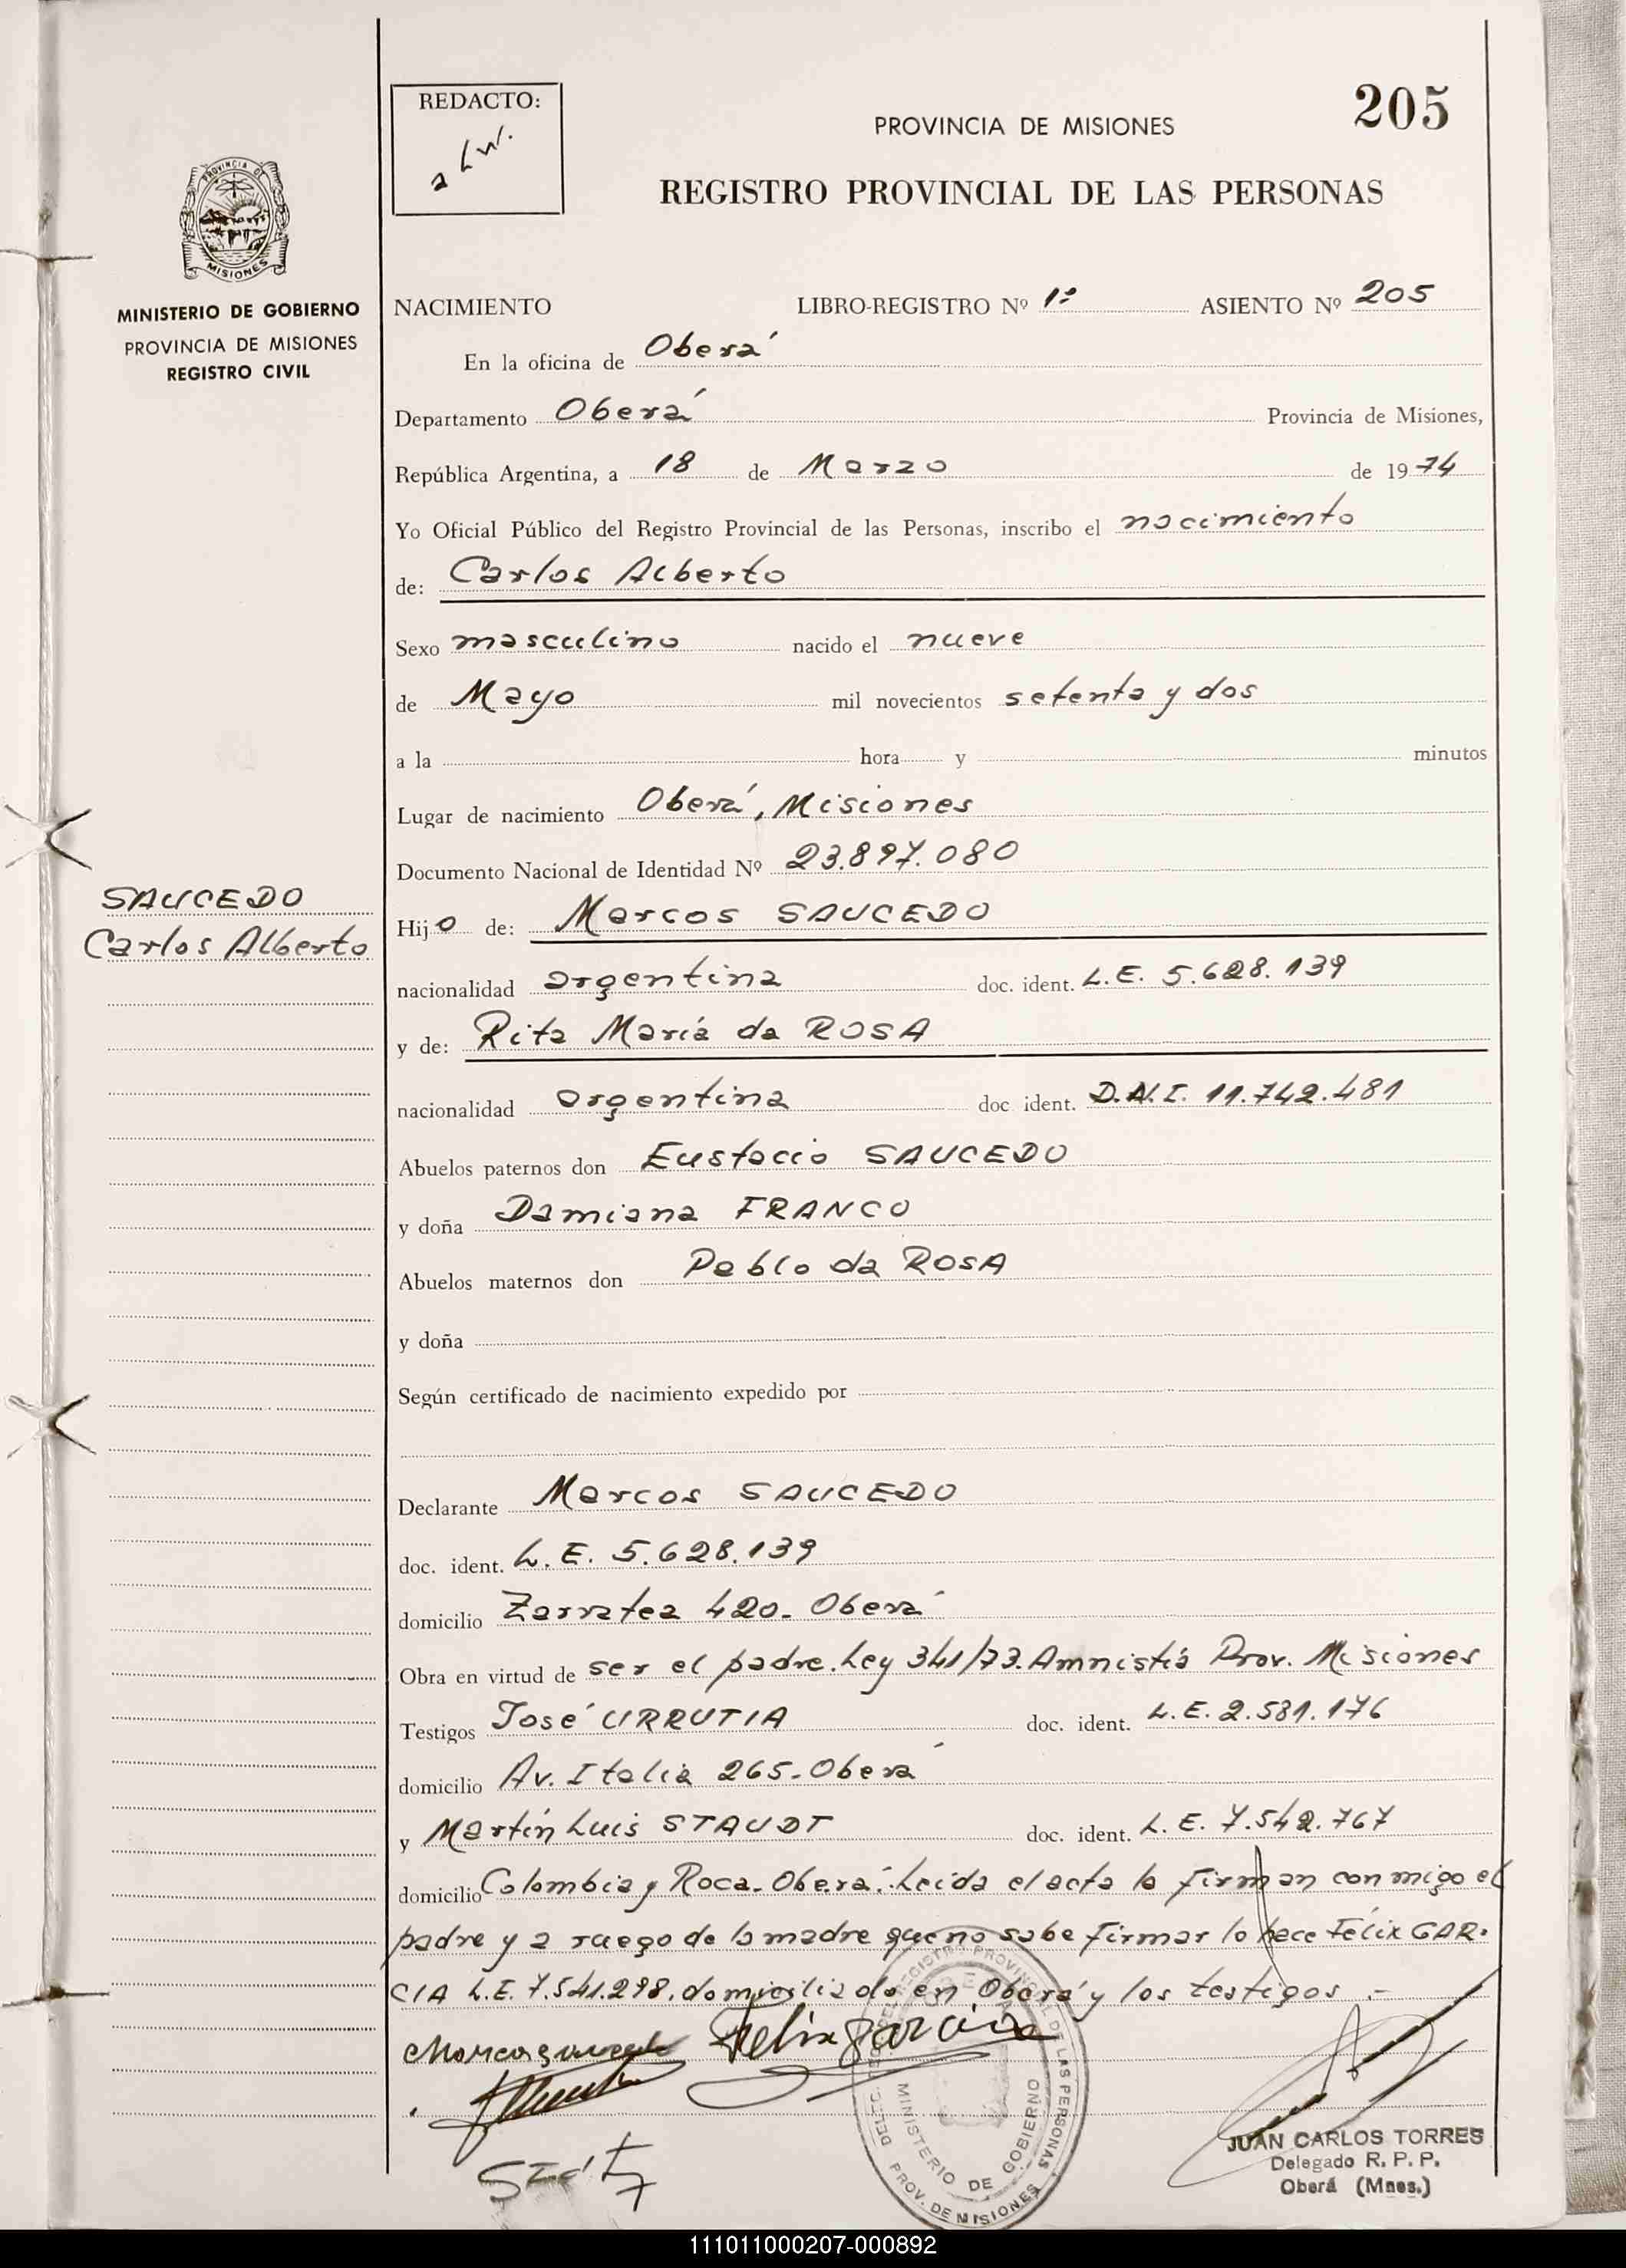 205
REDACTO:
PROVINCIA DE MISIONES
REGISTRO PROVINCIAL DE LAS PERSONAS
PROVINCIA DE
MISIONES
MINISTERIO DE GOBIERNO
PROVINCIA DE MISIONES
REGISTRO CIVIL
NACIMIENTO LIBRO-REGISTRO Nº 1º ASIENTO Nº 205
En la oficina de Oberá
Departamento Oberá Provincia de Misiones,
República Argentina, a 18 de Marzo de 1974
Yo Oficial Público del Registro Provincial de las Personas, inscribo el nacimiento
de: Carlos Alberto
Sexo masculino nacido el nueve
de Mayo mil novecientos setenta y dos
a la hora y minutos
Lugar de nacimiento Oberá, Misiones
Documento Nacional de Identidad Nº 23.897.080
SAUCEDO
Carlos Alberto
Hijo de: Marcos SAUCEDO
nacionalidad argentina doc. ident. L.E. 5.628.139
y de: Rita María da ROSA
nacionalidad argentina doc ident. D.N.I. 11.742.481
Abuelos paternos don Eustacio SAUCEDO
y doña Damiana FRANCO
Abuelos maternos don Pablo da ROSA
y doña
Según certificado de nacimiento expedido por
Declarante Marcos SAUCEDO
doc. ident. L.E. 5.628.139
domicilio Zarratea 420- Oberá
Obra en virtud de ser el padre. Ley 341/73. Amnistía Prov. Misiones
Testigos José URRUTIA doc. ident. L.E. 2.581.176
domicilio Av. Italia 265-Oberá
y Martín Luis STAUDT doc. ident. L.E. 7.542.767
domicilio Colombia y Roca-Oberá. Leida el acta la firman conmigo el
padre y a ruego de la madre que no sabe firmar lo hace Félix GAR-
CIA L.E. 7.541.298. domiciliado en Oberá y los testigos.-
Marcos Saucedo Felix garcia
REGISTRO PROVINCIAL DE LAS PERSONAS
MINISTERIO DE GOBIERNO
PROV. DE MISIONES
JUAN CARLOS TORRES
Delegado R. P. P.
Oberá (Mnes.)
111011000207-000892